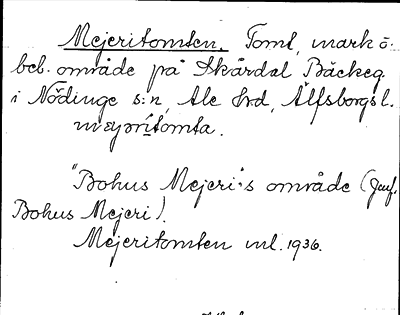 Mejeritomten. Tomt, mark o.
beb. område på Skårdal Bäckeg.
i Nödinge s:n, Ale hrd, Älfsborgs l.
mεyərìtomta.
"Bohus Mejeri":s område (Jmf.
Bohus Mejeri).
Mejeritomten uul. 1936.